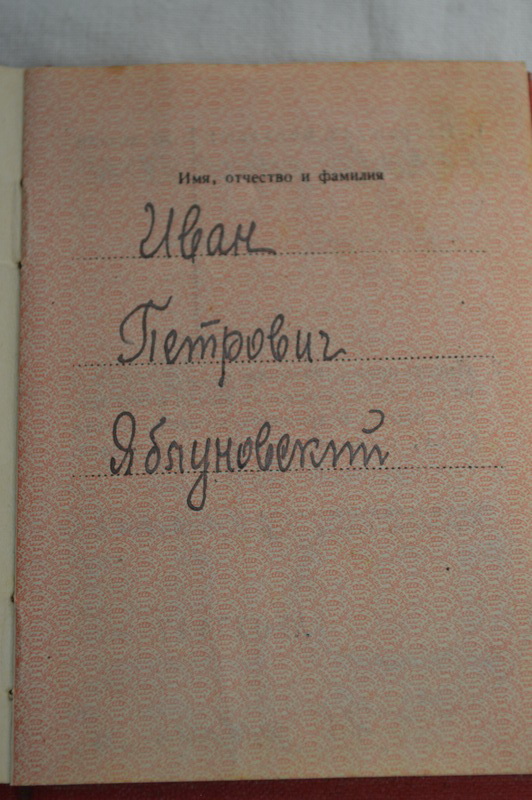 Имя, отчество и фамилия
Иван
Петрович
Яблуновский